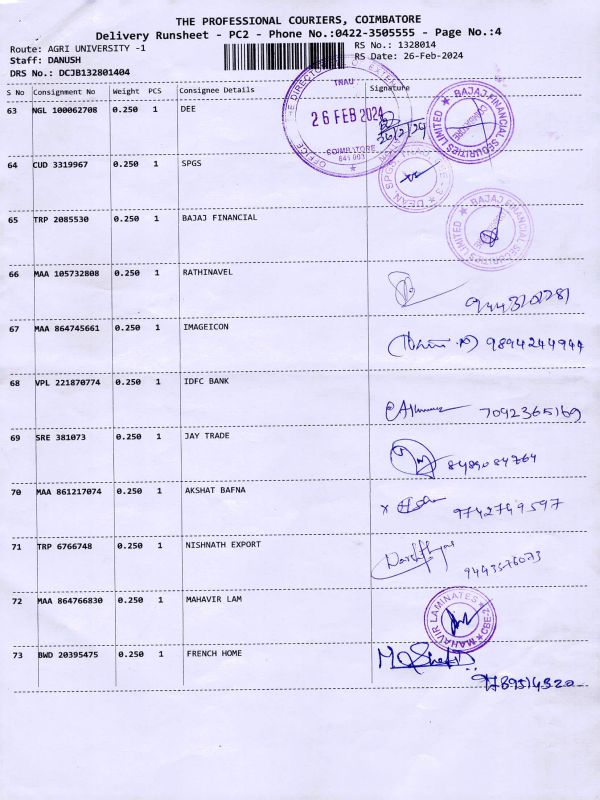 THE PROFESSIONAL COURIERS, COIMBATORE
Delivery Runsheet - PC2 - Phone No.:0422-3505555 - Page No.:4
Route: AGRI UNIVERSITY -1
RS No.: 1328014
Staff: DANUSH
RS Date: 26-Feb-2024
DRS No.: DCJB132801404
S No Consignment No Weight PCS Consignee Details Signature
63 NGL 100062708 0.250 1 DEE
TNAU
26 FEB 2024
COIMBATORE
641 003
26/2/24
BAJAJ FINANCIAL SECURITIES LIMITED
64 CUD 3319967 0.250 1 SPGS
65 TRP 2085530 0.250 1 BAJAJ FINANCIAL
BAJAJ FINANCIAL SECURITIES LIMITED
66 MAA 105732808 0.250 1 RATHINAVEL
67 MAA 864745661 0.250 1 IMAGEICON
9894244944
68 VPL 221870774 0.250 1 IDFC BANK
7092365169
69 SRE 381073 0.250 1 JAY TRADE
8489084764
70 MAA 861217074 0.250 1 AKSHAT BAFNA
9742749597
71 TRP 6766748 0.250 1 NISHNATH EXPORT
9443576073
72 MAA 864766830 0.250 1 MAHAVIR LAM
MAHAVIR LAMINATES
73 BWD 20395475 0.250 1 FRENCH HOME
9789514320